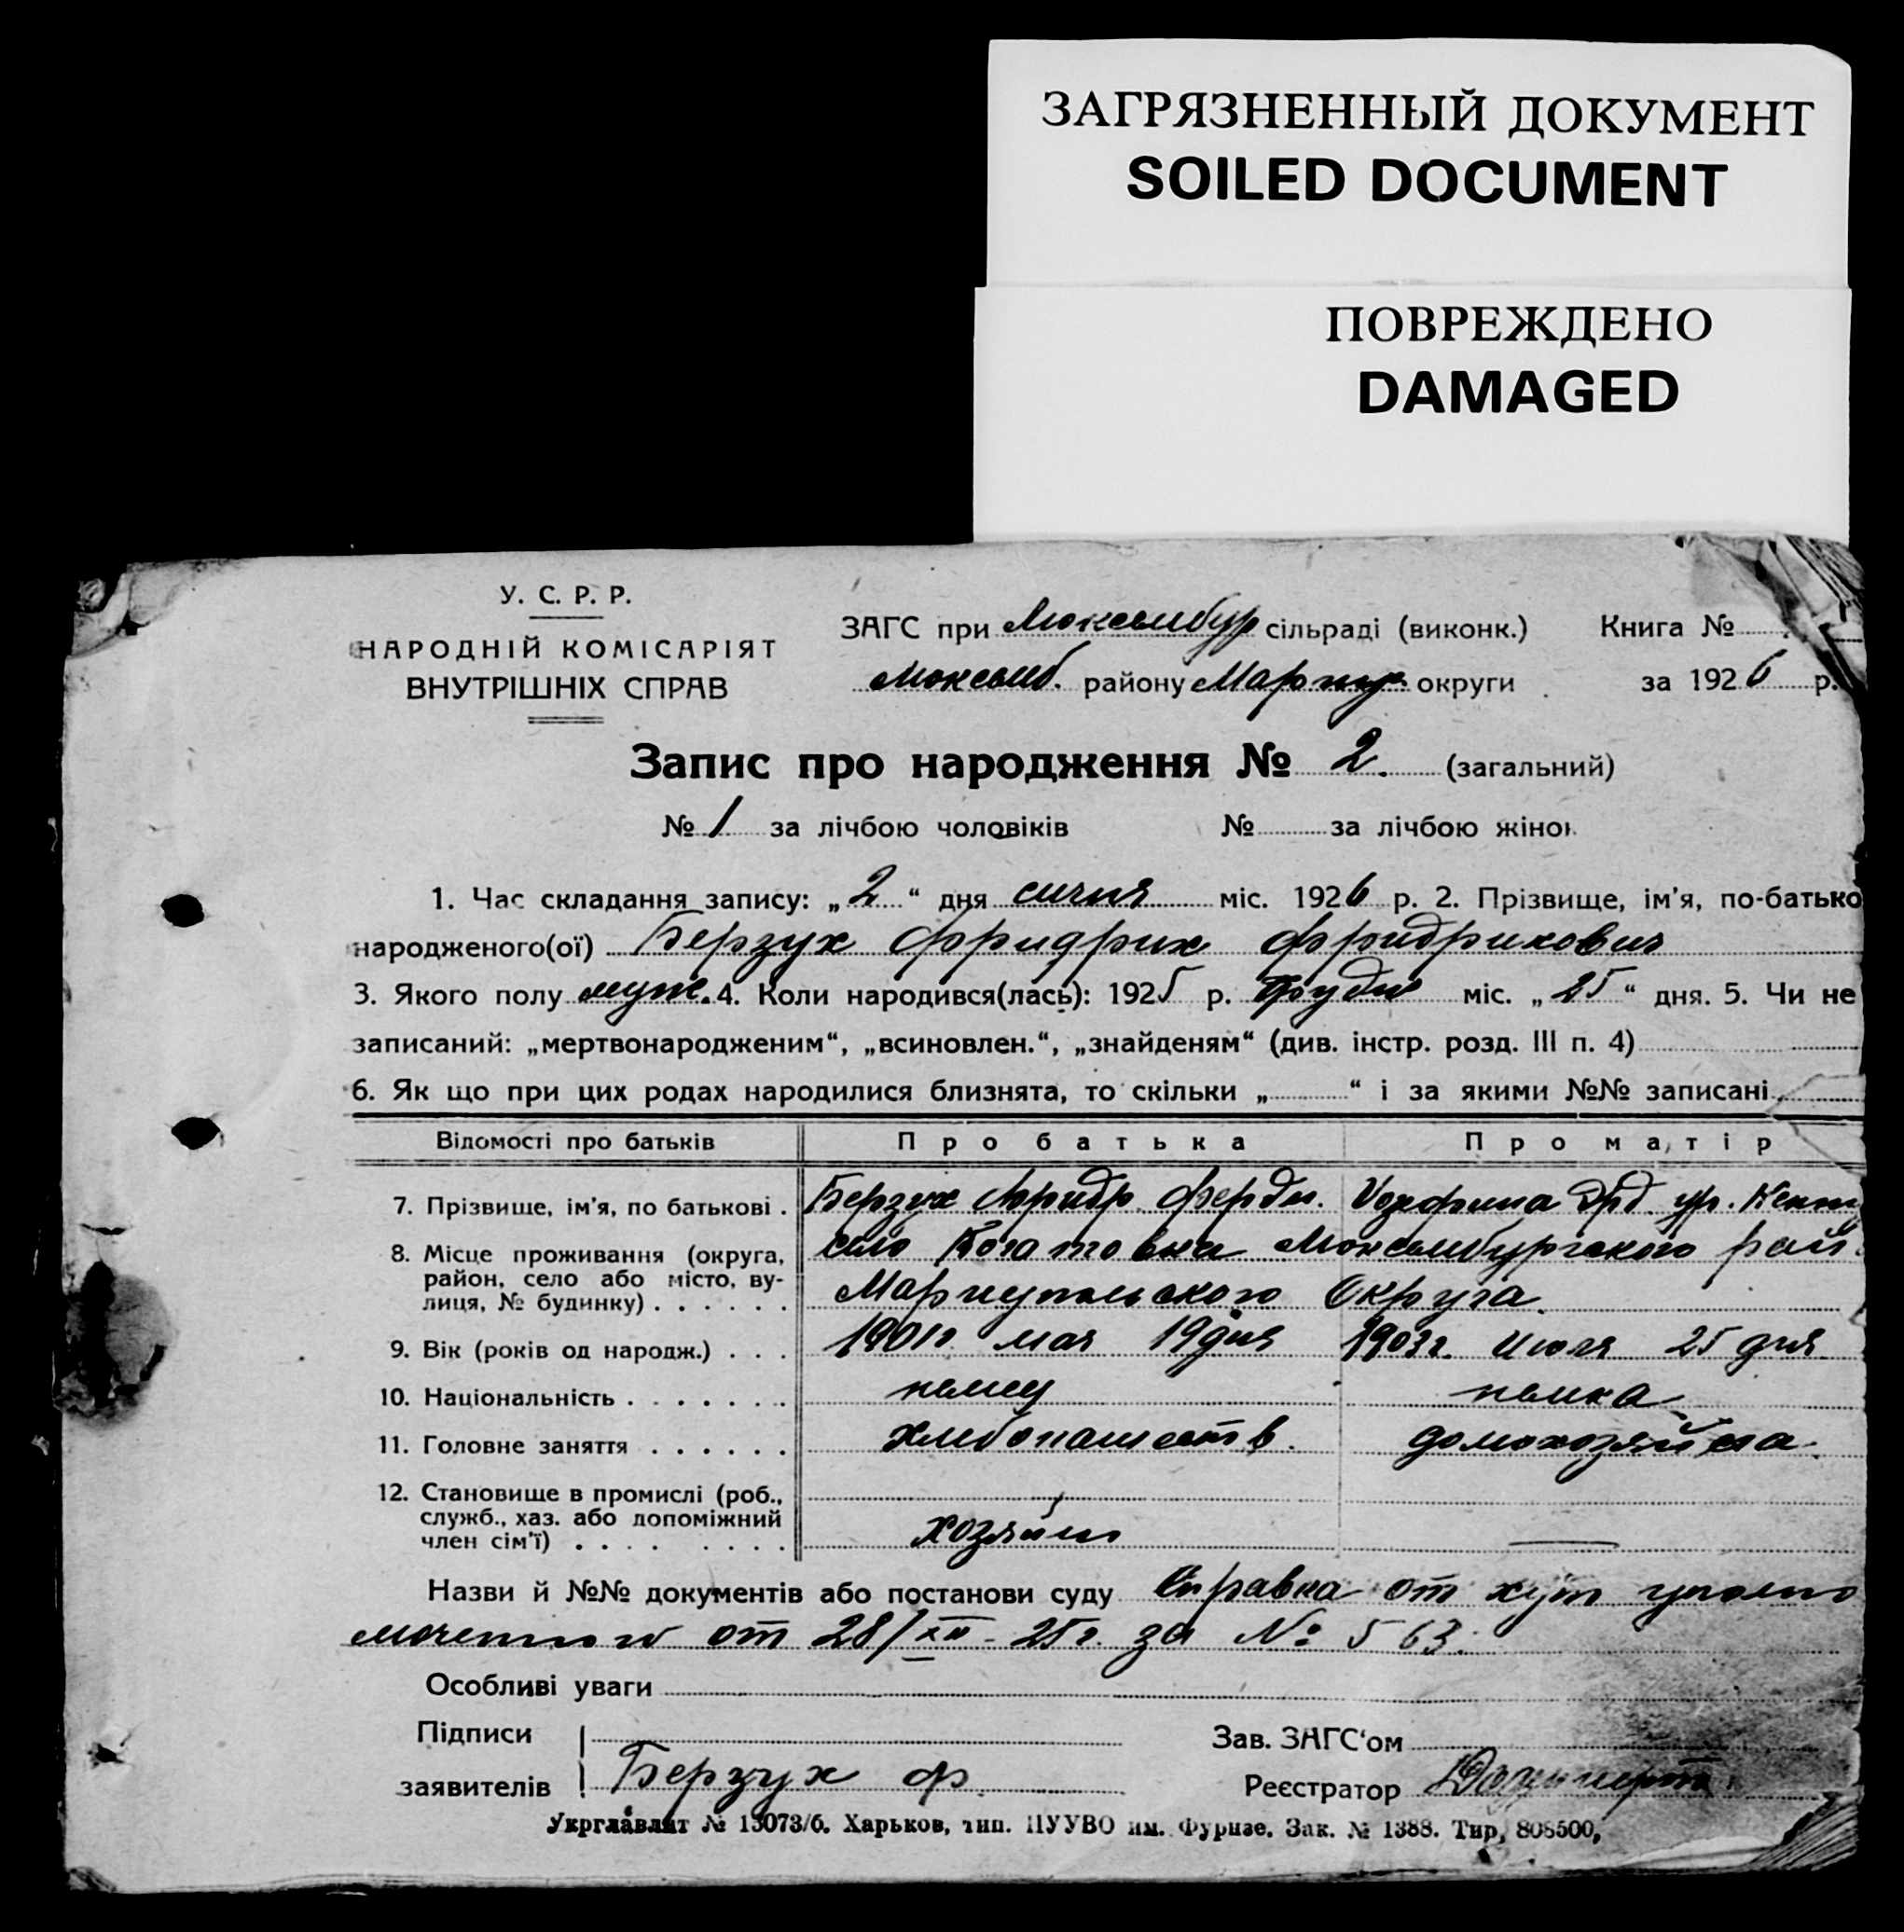 ЗАГРЯЗНЕННЫЙ ДОКУМЕНТ
SOILED DOCUMENT
ПОВРЕЖДЕНО
DAMAGED
У. С. Р. Р.
НАРОДНІЙ КОМІСАРІЯТ
ВНУТРІШНІХ СПРАВ
ЗАГС при Люксембур сільраді (виконк.)
Люксемб. району Мариуп. округи
Книга №
за 1926 р.
Запис про народження № 2. (загальний)
№ 1 за лічбою чоловіків № за лічбою жінок
1. Час складання запису: „2“ дня сичня міс. 1926 р. 2. Прізвище, ім'я, по-батько
народженого(ої) Берзух Фридрих Фридрихович
3. Якого полу муж. 4. Коли народився(лась): 1925 р. Грудня міс. „25“ дня. 5. Чи не
записаний: „мертвонародженим“, „всиновлен.“, „знайденям“ (див. інстр. розд. III п. 4)
6. Як що при цих родах народилися близнята, то скільки „ “ і за якими №№ записані
Відомості про батьків Про батька Про матір
7. Прізвище, ім'я, по батькові . Берзух Фридр. Ферди. Иозефина ур.
8. Місце проживання (округа, район, село або місто, ву-лиця, № будинку) . . . . . . село Богатовка Люксембургского рай.
Мариупольского Округа.
9. Вік (років од народж.) . . . 1901г. мая 19 дня 1903г. Июля 25 дня
10. Національність . . . . . . . немец немка
11. Головне заняття . . . . . . хлебопашеств. домохозяйка
12. Становище в промислі (роб.,
служб., хаз. або допоміжний
член сім'ї) . . . . . . . . хозяин —
Назви й №№ документів або постанови суду Справка от хут уполно
моченного от 28/XII-25г. за № 563.
Особливі уваги
Підписи
заявителів Берзух Ф
Зав. ЗАГС'ом
Реєстратор
Укрглавліт № 15073/б. Харьков, тип. ПУУВО им. Фрунзе. Зак. № 1388. Тир, 808500,